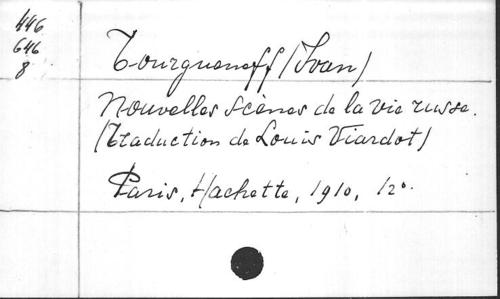 446
646
8
Tourgueneff (Ivan)
Nouvelles scènes de la vie russe.
(Traduction de Louis Viardot)
Paris, Hachette, 1910, 12°.